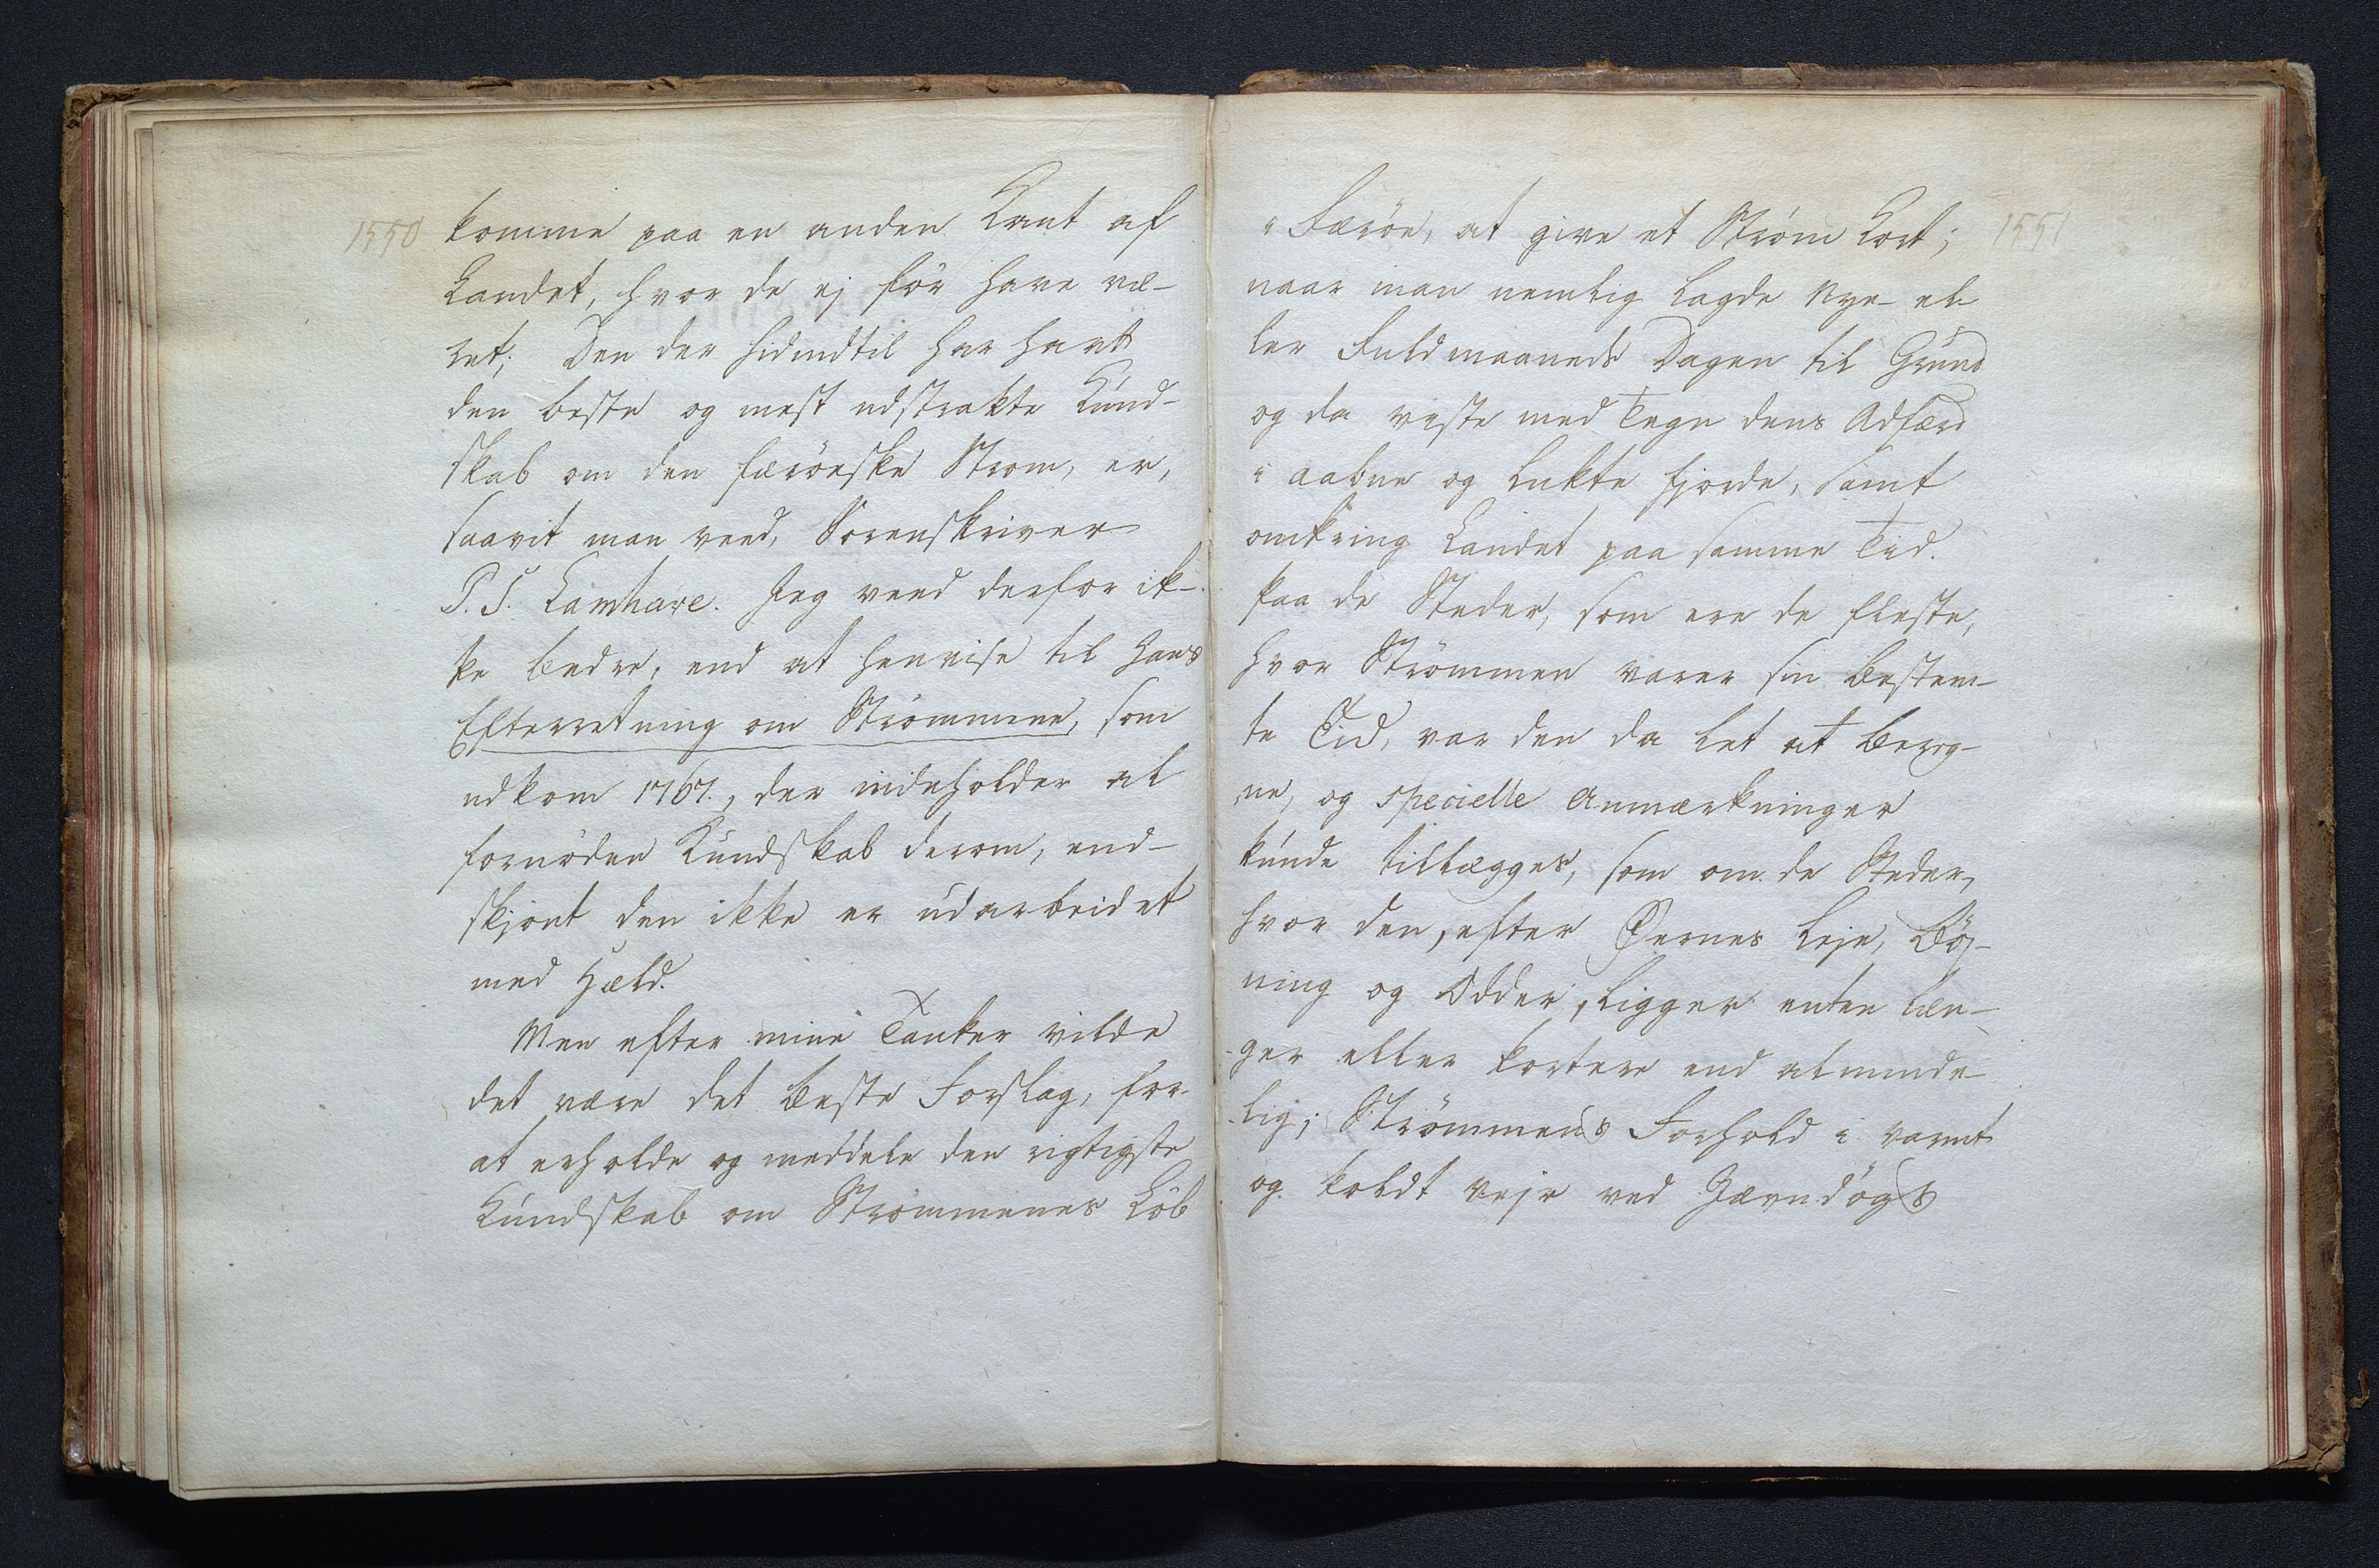 1550
komme paa en anden Kant af
Landet, hvor de ej för have væ-
ret; Den der hidindtil har havt
den beste og mest udstrakte Kund-
skab om den færöeske Strom, er,
saavit man veed, Sorenskriver
P. S. Lamhave. Jeg veed derfor ik-
ke bedre, end at henvise til hans
Efterretning om Strømmene, som
udkom 1767., der indeholder al
fornöden Kundskab derom, end-
skjönt den ikke er udarbeidet
med Held.
Men efter mine Tanker vilde
det være det beste Forslag, for
at erholde og meddele den rigtigste
Kundskab om Strömmenes Löb
1551
i Færöe, at give et Ström Kort;
naar man nemlig lagde Nye- el-
ler Fuldmaaneds Dagen til Grund
og da viste med Tegn dens Adfærd
i aabne og lukte Fjorde, samt
omkring Landet paa samme Tid.
Paa de Steder, som ere de fleste,
hvor Strömmen varer sin bestem-
te Tid, var den da let at bereg-
ne, og specielle Anmærkninger
kunde tillægges, som om de Steder,
hvor den, efter Øernes Leje, Böj-
ning og Odder, ligger enten læn-
ger eller kortere end alminde-
lig; Strömmens Forhold i varmt
og koldt Vejr ved Jævndögs